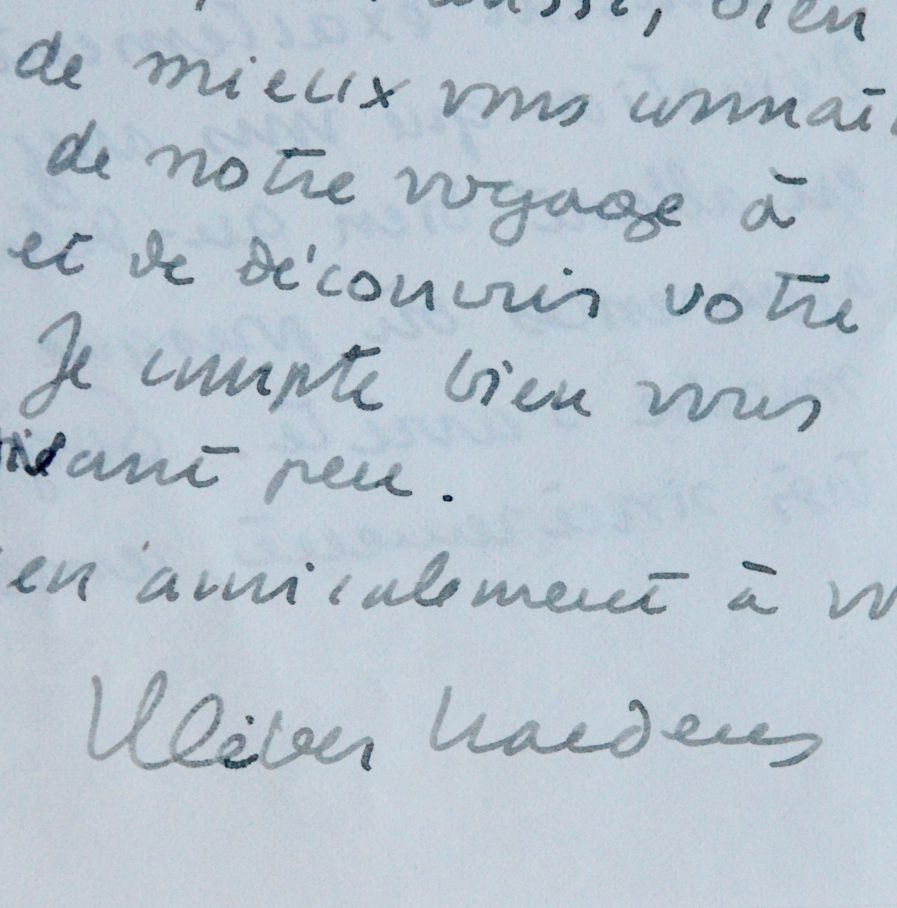 aussi, bien
de mieux vous connaî
de notre voyage à
et de découvrir votre
Je compte bien vous
avant peu.
en amicalement à v
Kléber Haedens